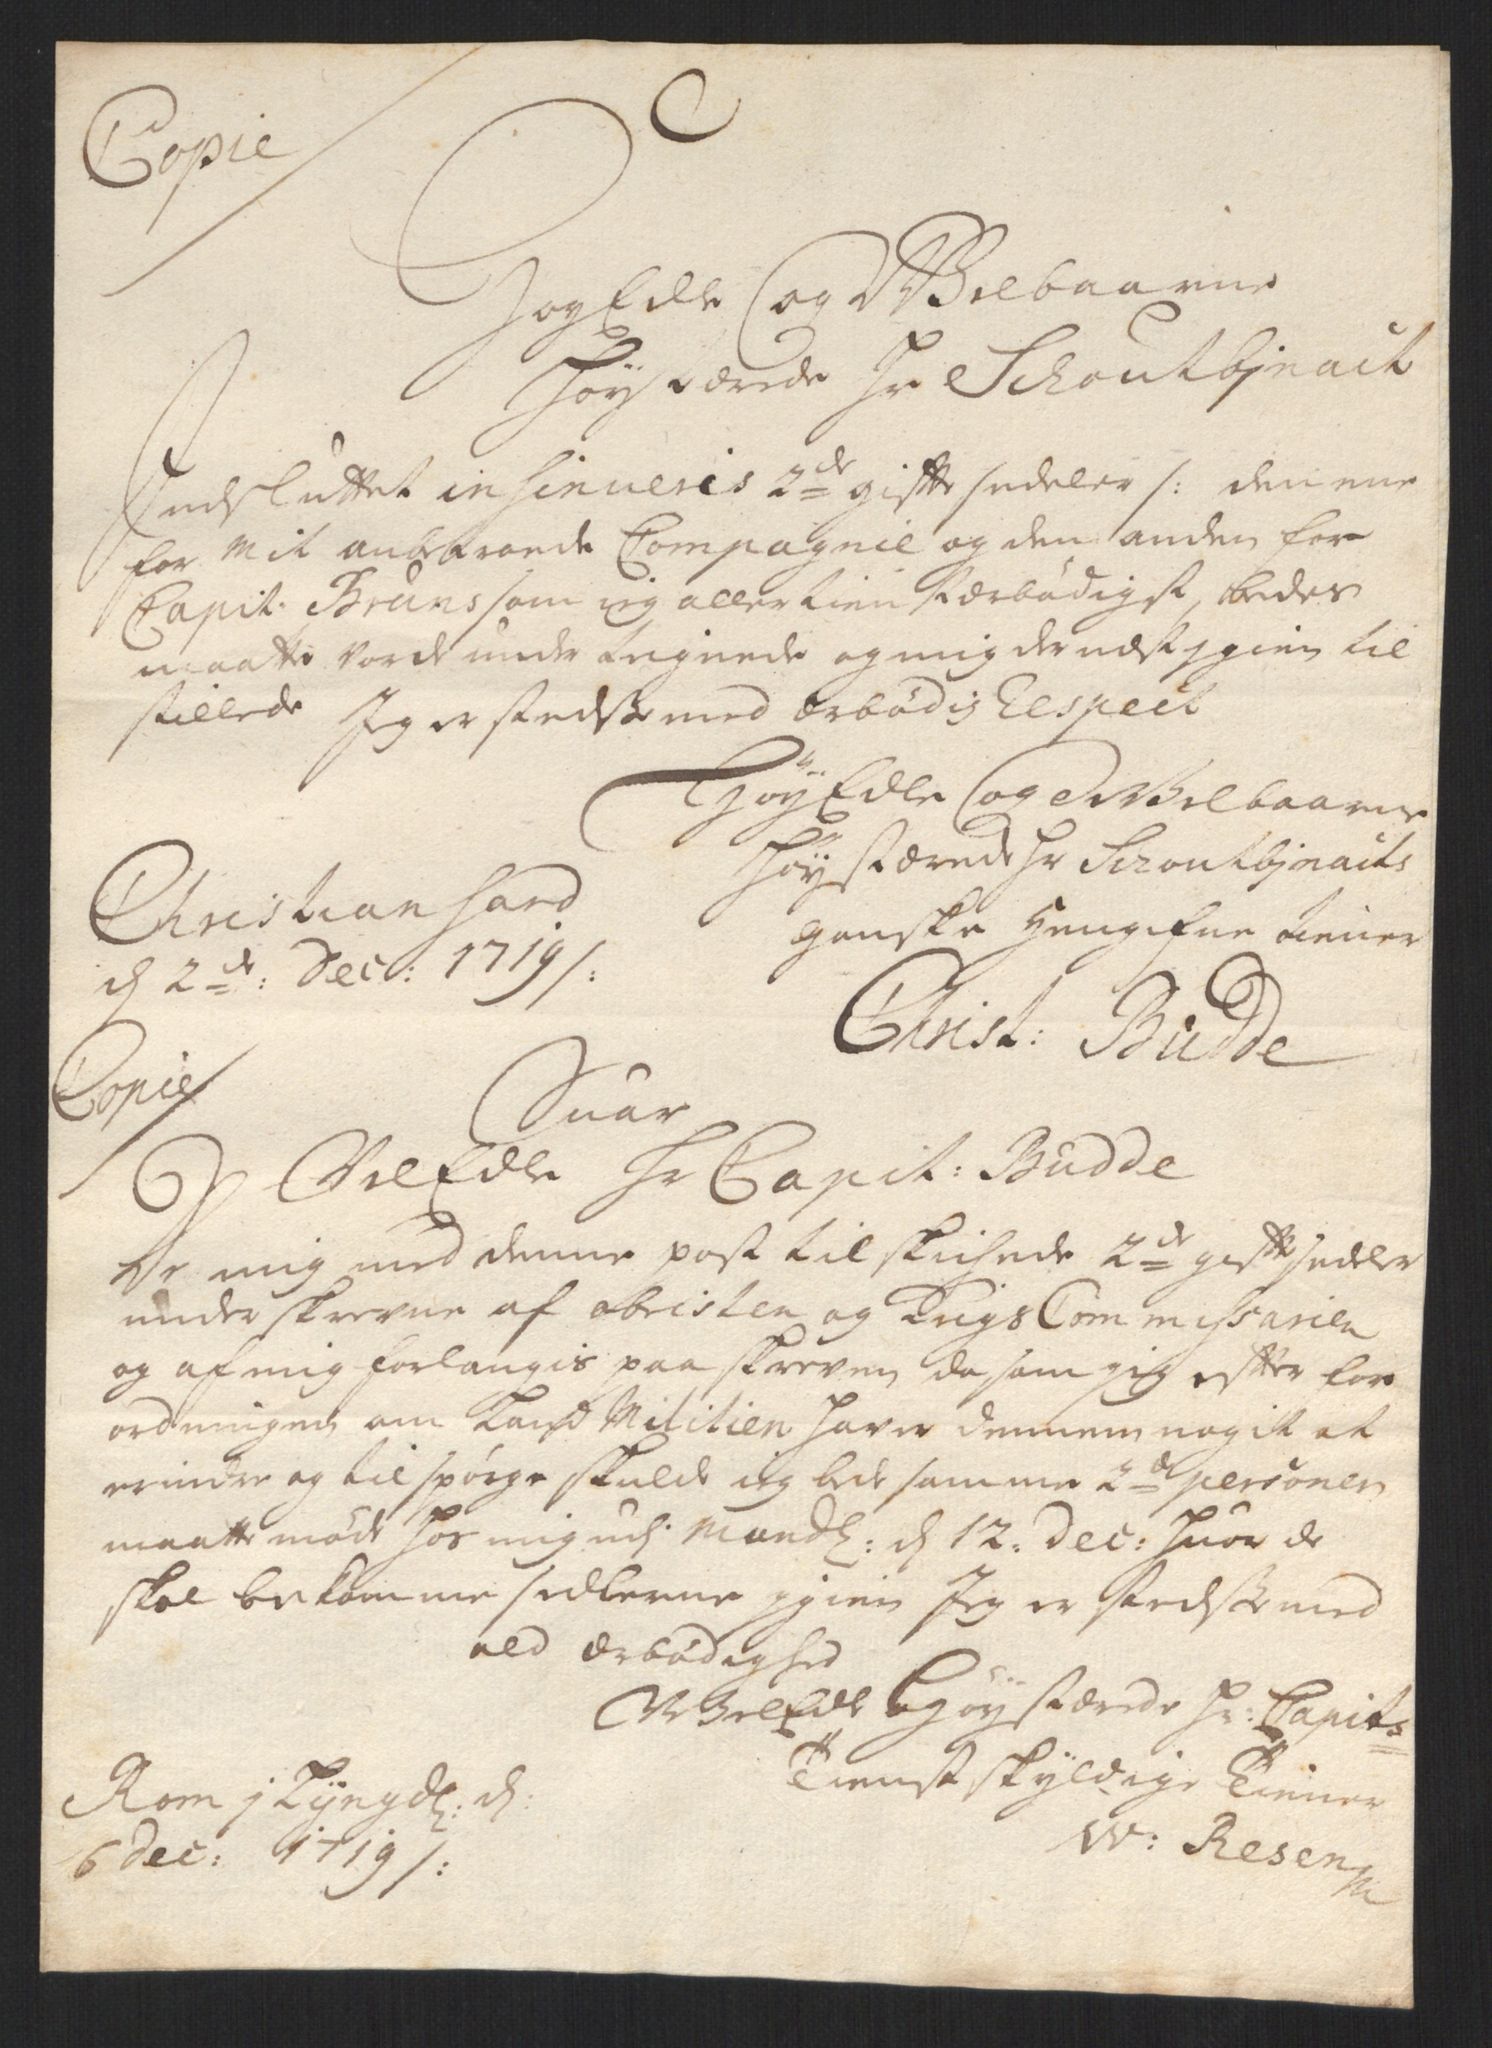 Copie
HøyEdle og Velbaarne
Høystærede Hr Schoutbjnact
Indsluttet insinueris 2de giftte sedeler /: den ene
for mit anbetroede Compagnie og den anden for
Capit. Bruns som ieg aller tienstærbødigst, bedes
maatte vorde under teignede og mig dernest jgien til
stillede Jeg er stedse med ærbødig Respect
HøyEdle og Velbaarne
Høystærede Hr Schoutbjnacts
ganske hengifne tiener
Christiansand
d 2de: Dec: 1719/:
Christ: Budde
Copie
Suar
VelEdle Hr Capit: Budde
De mig med denne post tilskichede 2de giftte sedler
under skrevne af obristen og Krigs Commissarien
og af mig forlangis paa skreven da som jeg efter for
ordningen om Land Militien haver dennem nogit at
erindre og tilspørge skulde ieg bede samme 2de personer
maatte møde hos mig udj Mandl: d 12. Dec: huor de
skal bekomme sedlerne jgien Jeg er stedse med
ald ærbødighed
VelEdle Høystærede Hr: Capits
Tienstskyldige Tiener
Rom j Lyngdl: d:
6 Dec: 1719/:
W: Resen